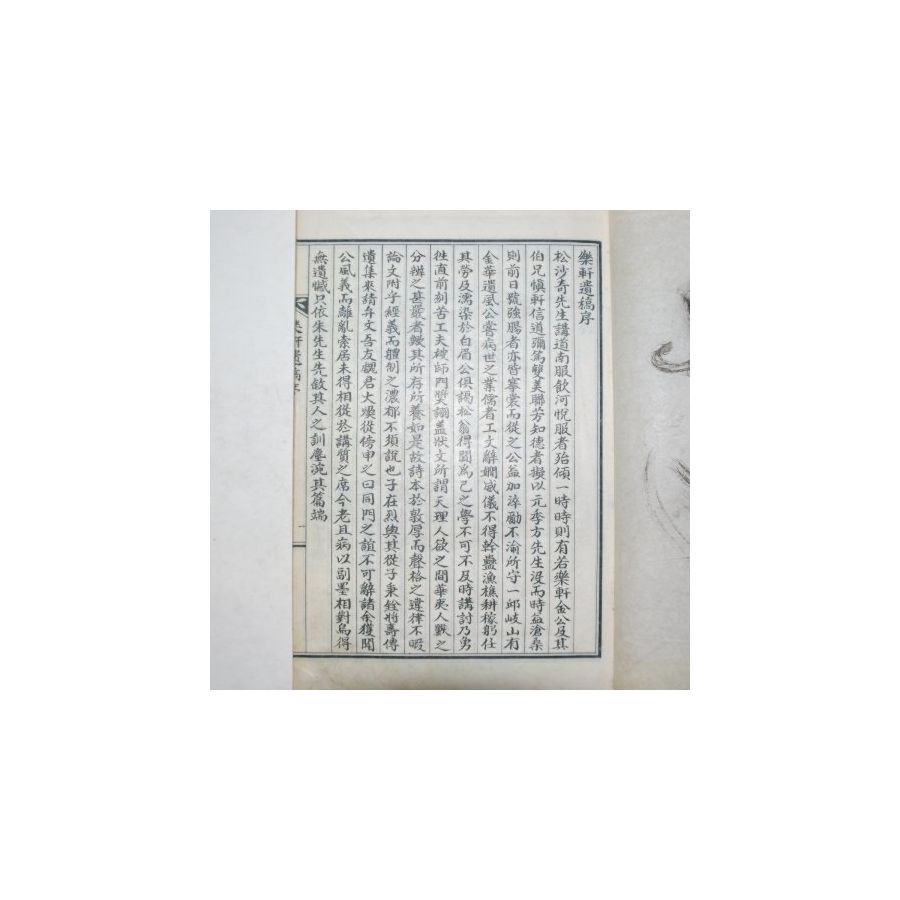 樂軒遺稿序
松沙奇先生講道南服飮河悅服者殆傾一時時則有若樂軒金公及其
伯兄愼軒信道彌篤雙美聯芳知德者擬以元季方先生沒而時益滄桑
則前日號強腸者亦皆褰裳而從之公益加淬勵不渝所守一邱岐山有
金華遺風公嘗病世之業儒者工文辭嫺威儀不得幹蠱漁樵耕稼躬任
其勞及濡染於白眉公俱謁松翁得聞爲己之學不可不及時講討乃勇
徃直前刻苦工夫被師門奬詡盖狀文所謂天理人欲之間華夷人獸之
分辨之甚嚴者鰲其所存所養如是故詩本於敦厚而聲格之違律不暇
論文附乎經義而軆制之濃郁不須說也子在烈與其從子秉銓將壽傳
遺集來請弁文吾友魏君大煥從傍申之曰同門之誼不可辭諸余獲聞
公風義而離亂索居未得相從於講質之席今老且病以副墨相對烏得
無遺憾只依朱先生先敘其人之訓塵涴其篇端
樂軒遺稿序
一